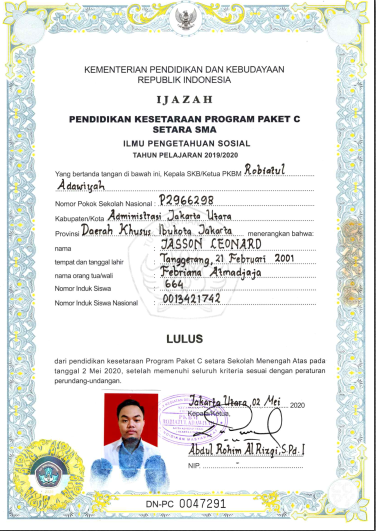 KEMENTERIAN PENDIDIKAN DAN KEBUDAYAAN
REPUBLIK INDONESIA
IJAZAH
PENDIDIKAN KESETARAAN PROGRAM PAKET C
SETARA SMA
ILMU PENGETAHUAN SOSIAL
TAHUN PELAJARAN 2019/2020
Yang bertanda tangan di bawah ini, Kepala SKB/Ketua PKBM Robiatul
Adawiyah
Nomor Pokok Sekolah Nasional : P2966298
Kabupaten/Kota Administrasi Jakarta Utara
Provinsi Daerah Khusus Ibukota Jakarta menerangkan bahwa:
nama : JASSON LEONARD
tempat dan tanggal lahir : Tanggerang, 21 Februari 2001
nama orang tua/wali : Febriana Atmadjaja
Nomor Induk Siswa : 664
Nomor Induk Siswa Nasional : 0013421742
LULUS
dari pendidikan kesetaraan Program Paket C setara Sekolah Menengah Atas pada
tanggal 2 Mei 2020, setelah memenuhi seluruh kriteria sesuai dengan peraturan
perundang-undangan.
Jakarta Utara, 02 Mei 2020
Kepala/Ketua,
Abdul Rohim Al Rizqi, S.Pd.I
NIP. -
DN-PC 0047291